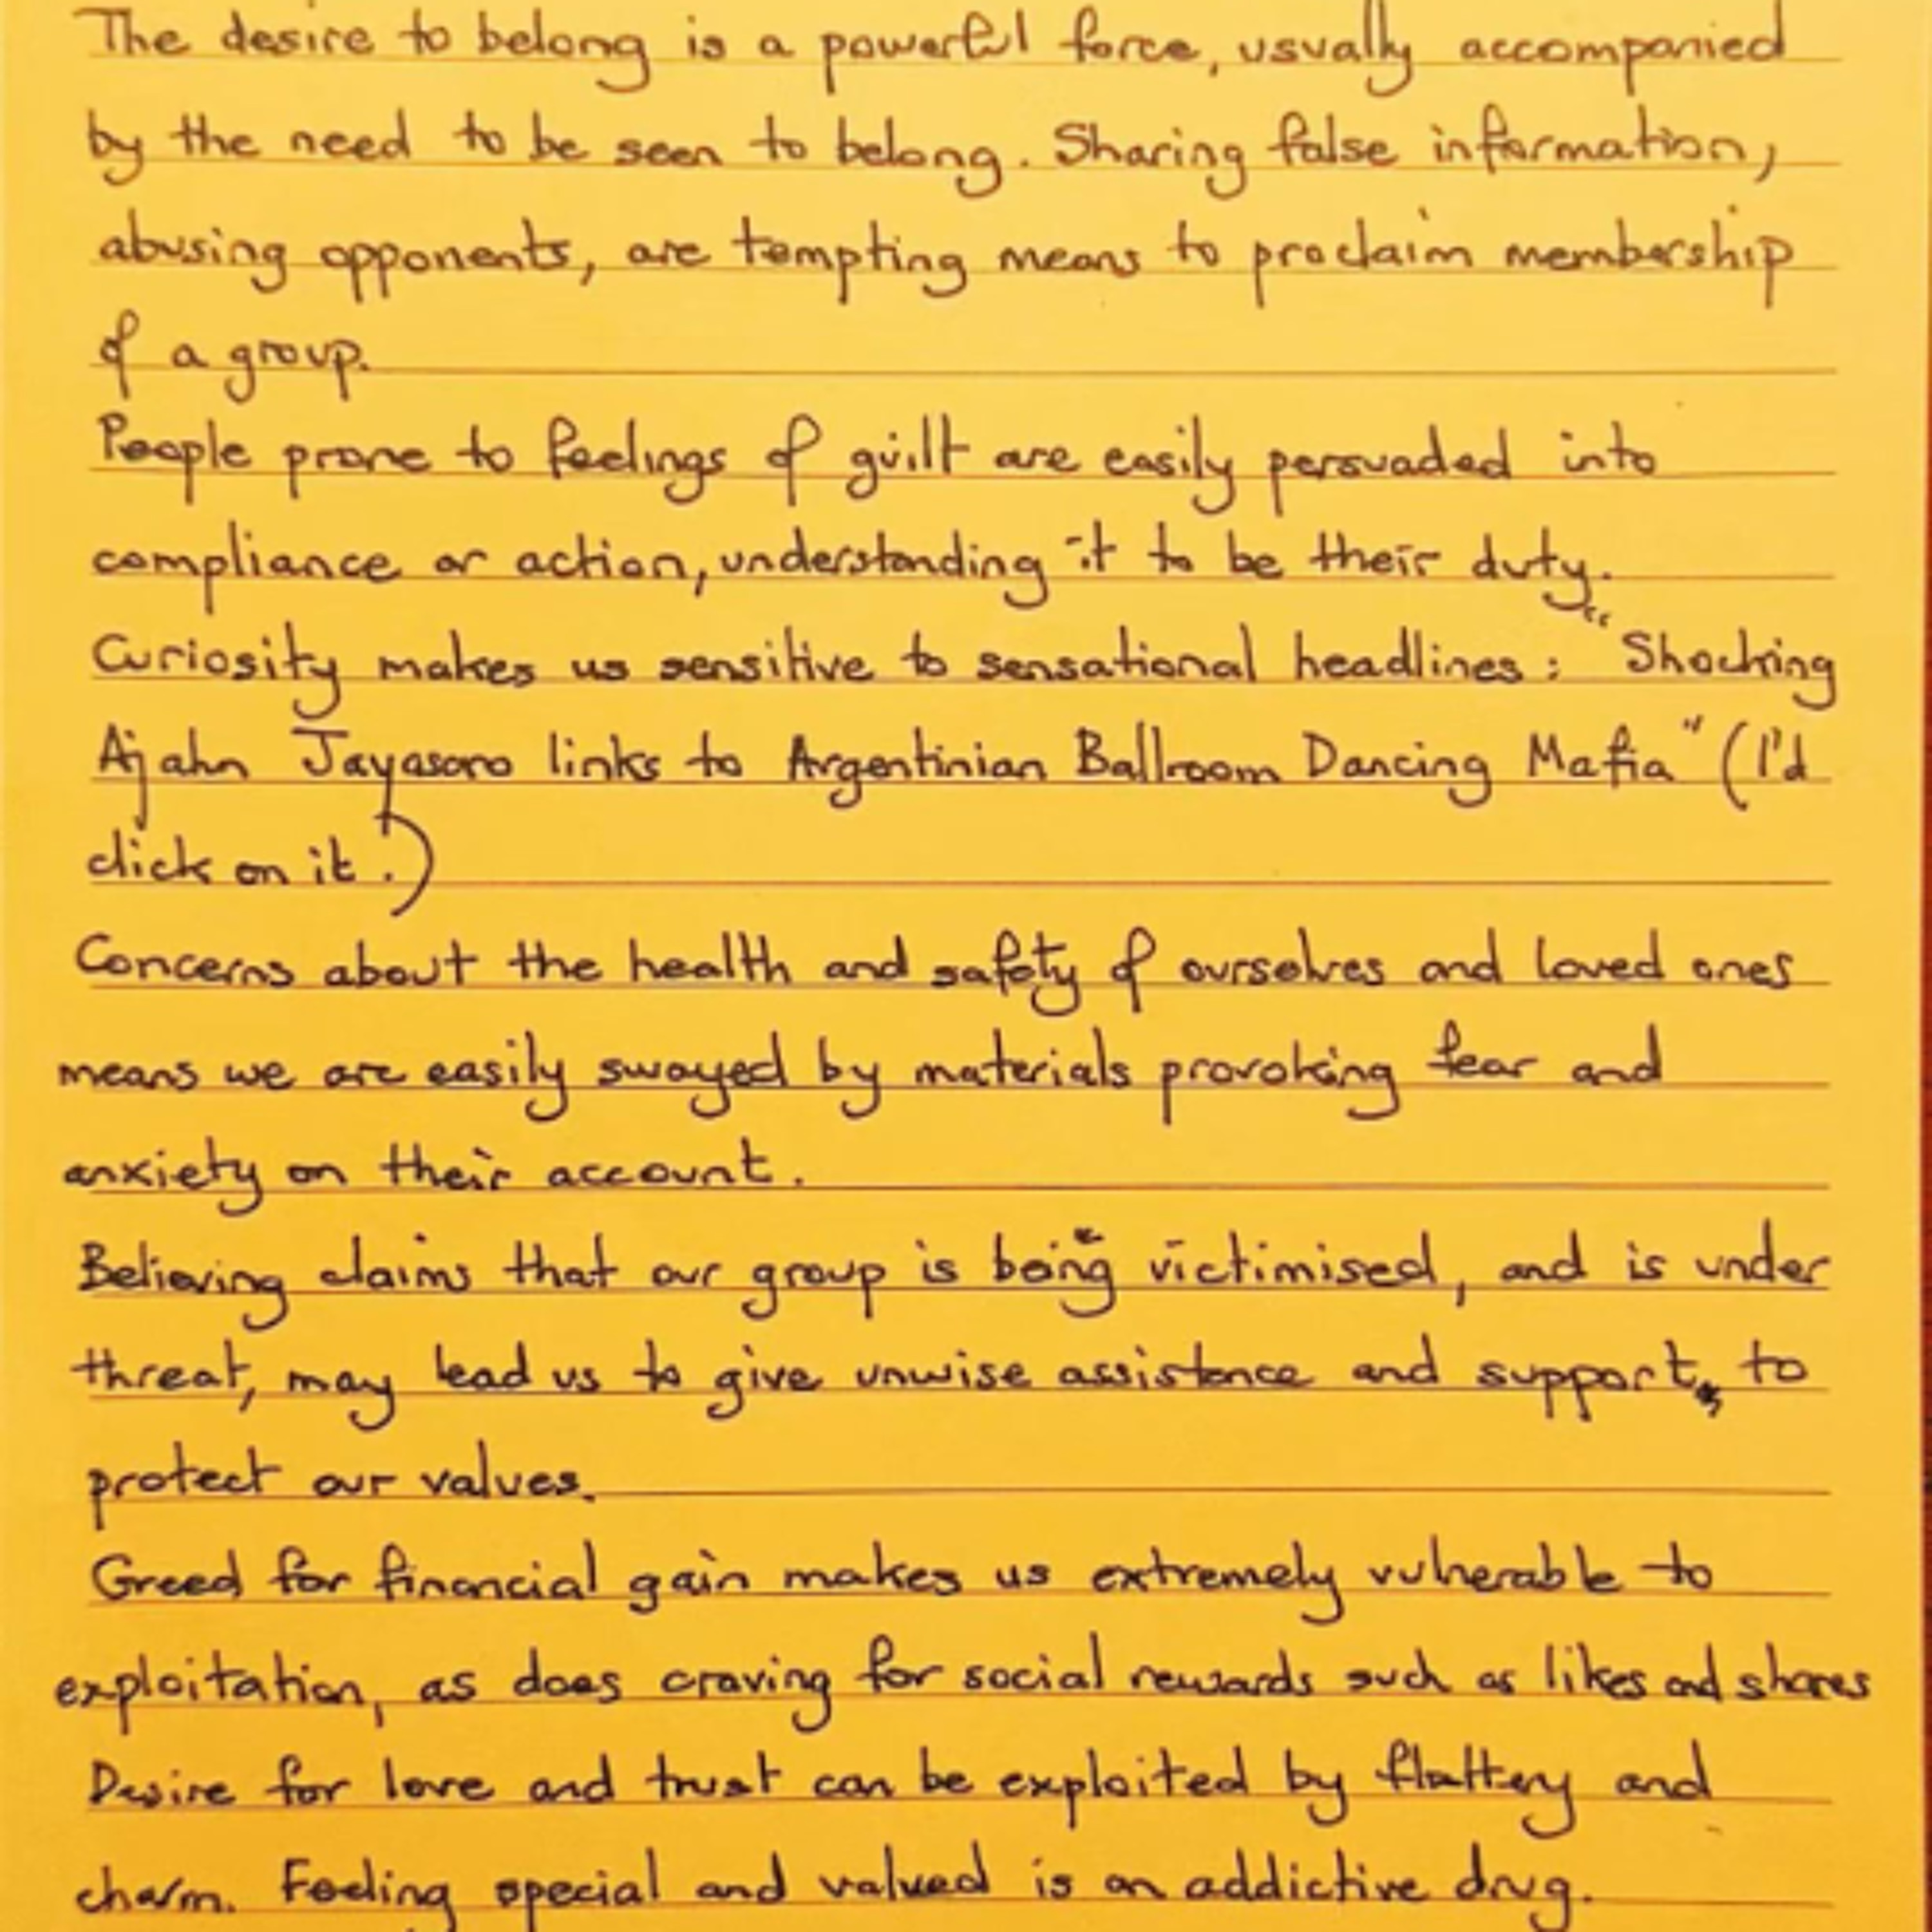 The desire to belong is a powerful force, usually accompanied
by the need to be seen to belong. Sharing false information,
abusing opponents, are tempting means to proclaim membership
of a group.
People prone to feelings of guilt are easily persuaded into
compliance or action, understanding it to be their duty.
Curiosity makes us sensitive to sensational headlines: "Shocking
Ajahn Jayasaro links to Argentinian Ballroom Dancing Mafia" (I'd
click on it.)
Concerns about the health and safety of ourselves and loved ones
means we are easily swayed by materials provoking fear and
anxiety on their account.
Believing claims that our group is being victimised, and is under
threat, may lead us to give unwise assistence and support, to
protect our values.
Greed for financial gain makes us extremely vulnerable to
exploitation, as does craving for social rewards such as likes and shares
Desire for love and trust can be exploited by flattery and
charm. Feeling special and valued is an addictive drug.